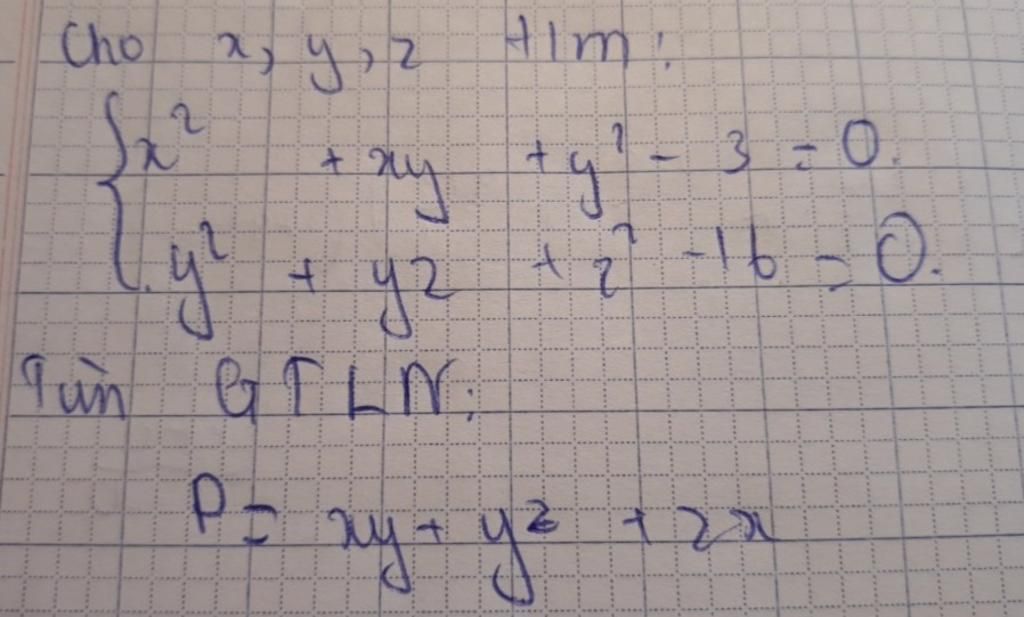 Cho x, y, z t/m:
x² + xy + y² - 3 = 0.
y² + yz + z² - 16 = 0.
Tìm GTLN:
P = xy + yz + zx